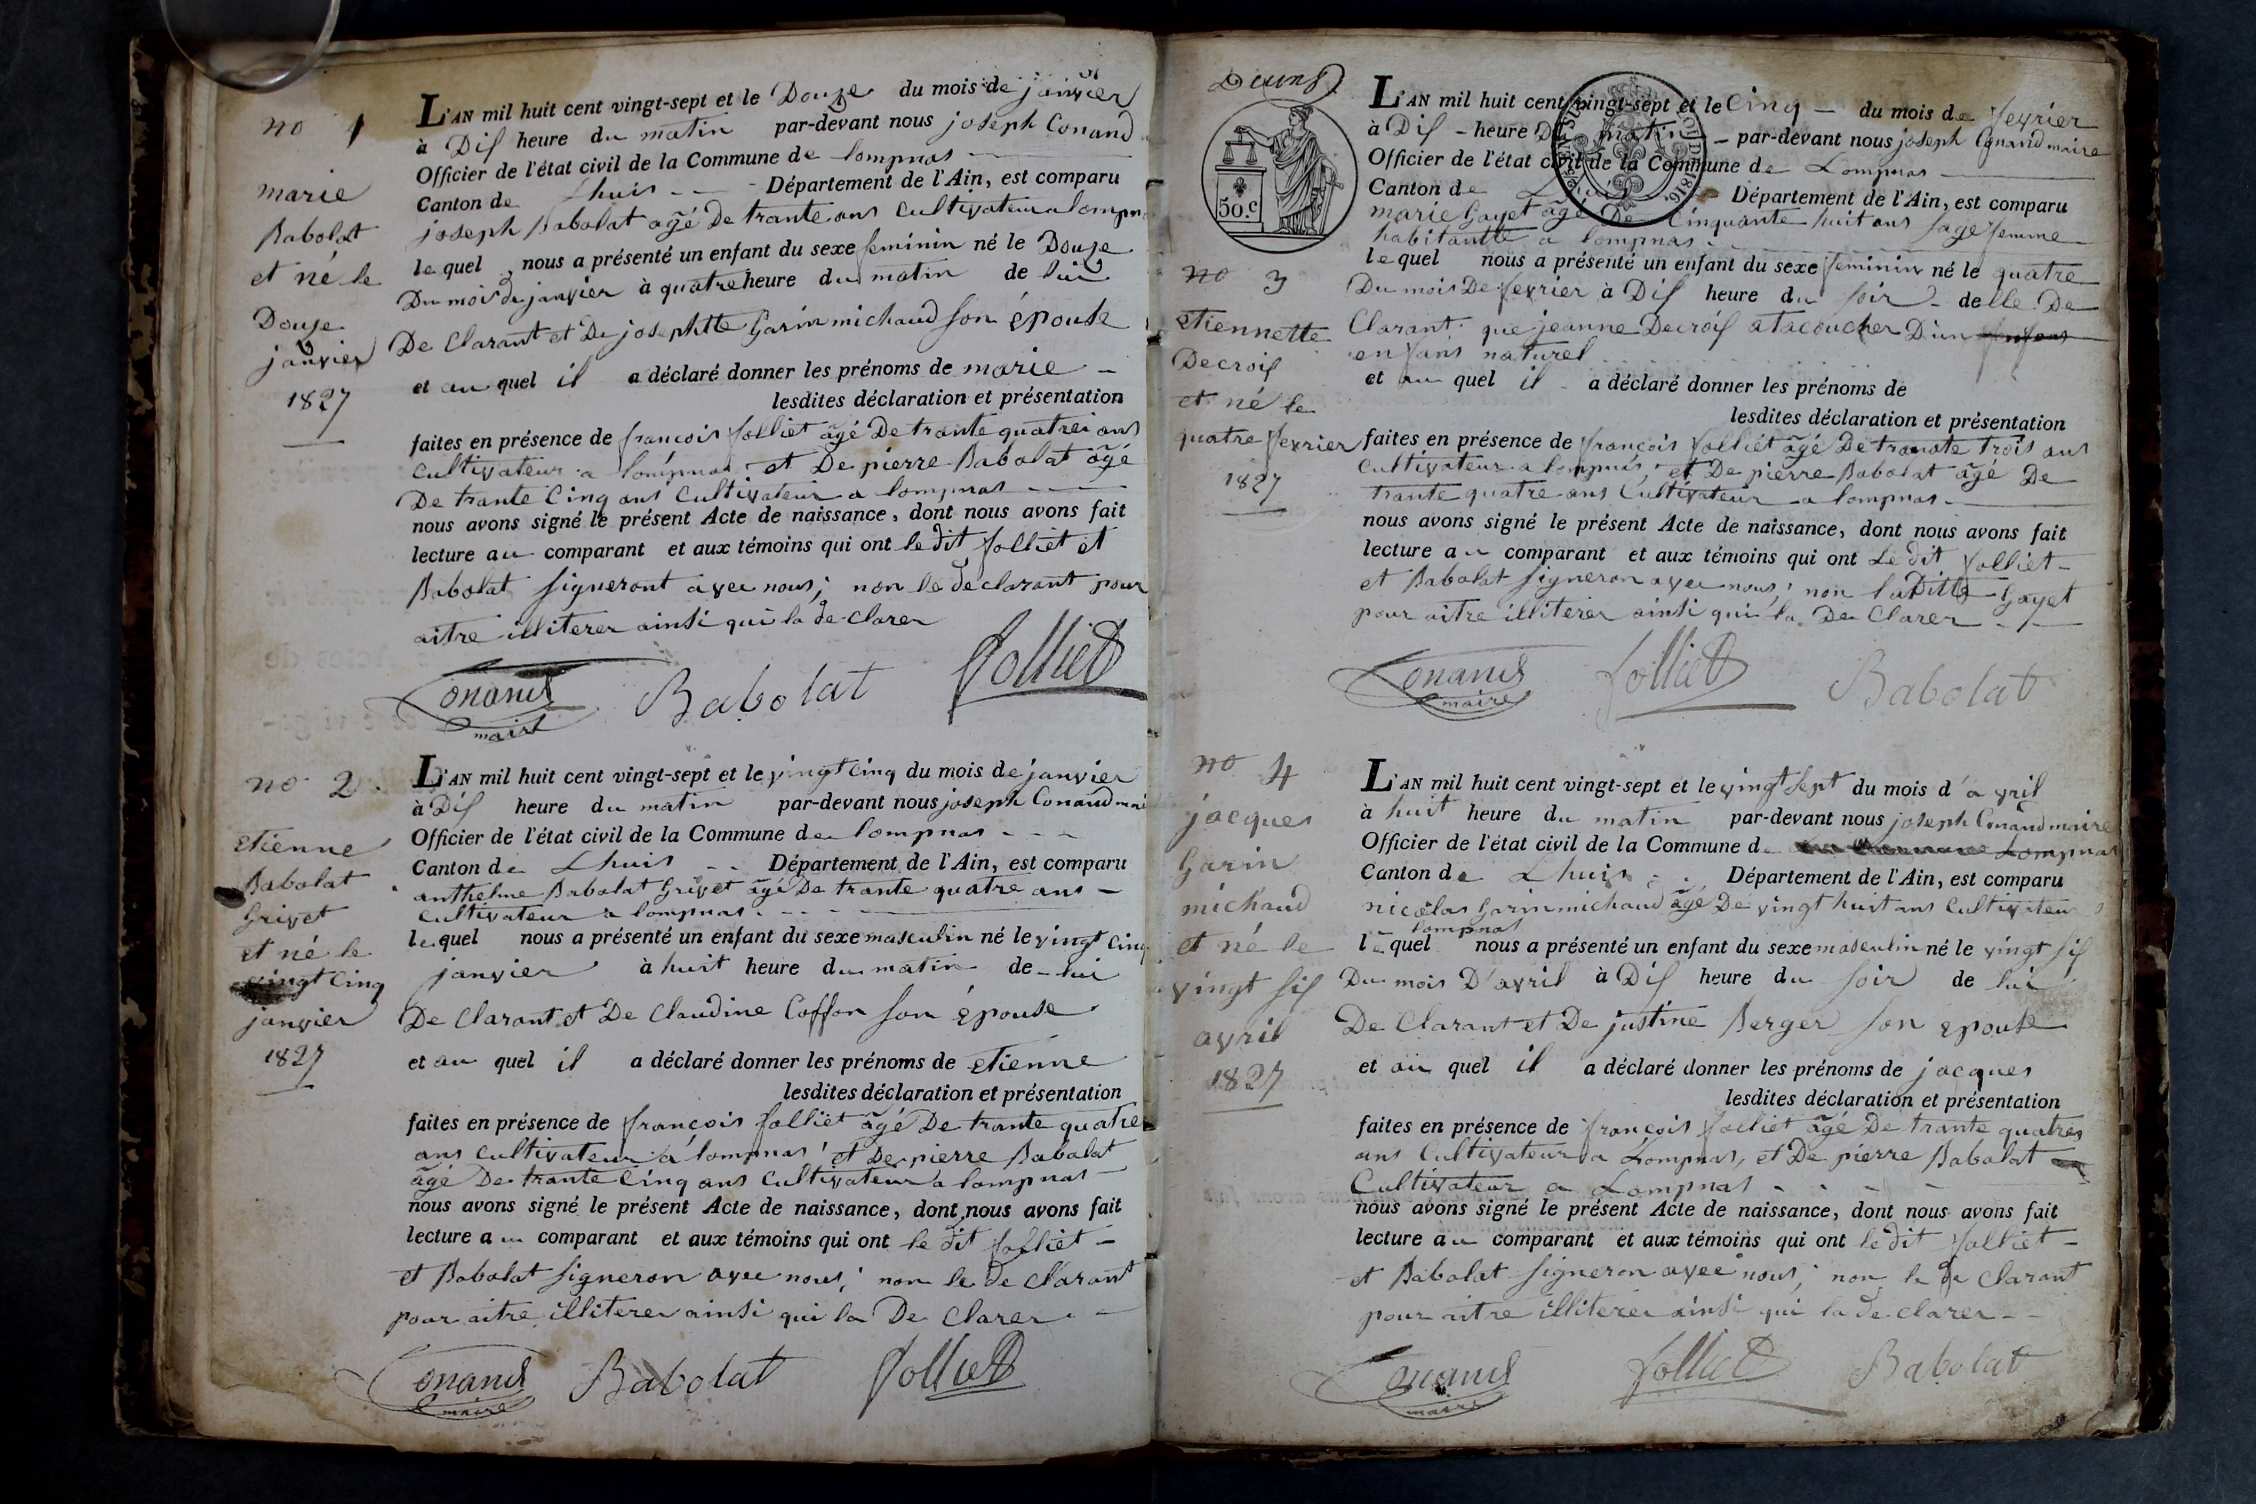 no 1
marie
Babolat
et né le
Douze
janvier
1827
L'AN mil huit cent vingt-sept et le Douze du mois de janvier
à Dis heure du matin par-devant nous joseph Conand
Officier de l'état civil de la Commune de lompnas
Canton de Lhuis Département de l'Ain, est comparu
joseph Babolat agé De trante ans Cultivateur a lompnas
le quel nous a présenté un enfant du sexe feminin né le Douze
Du mois de janvier à quatre heure du matin de lui
De Clarant et De josephtte Garin michaud son épouse
et au quel il a déclaré donner les prénoms de marie
lesdites déclaration et présentation
faites en présence de françois folliet âgé De trante quatre ans
Cultivateur a lompnas et De pierre Babolat âgé
De trante Cinq ans Cultivateur a lompnas
nous avons signé le présent Acte de naissance, dont nous avons fait
lecture au comparant et aux témoins qui ont le dit folliet et
Babolat signeront avec nous; non le declarant pour
aitre illiterer ainsi qui la de clarer
Conand
maire
Babolat
folliet
no 2
etienne
Babolat
Grivet
et né le
vingt Cinq
janvier
1827
L'AN mil huit cent vingt-sept et le vingt Cinq du mois de janvier
à Dis heure du matin par-devant nous joseph Conand
Officier de l'état civil de la Commune de lompnas
Canton de Lhuis Département de l'Ain, est comparu
anthelme Babolat Grivet âgé De trante quatre ans
Cultivateur a lompnas
le quel nous a présenté un enfant du sexe masculin né le vingt Cinq
janvier à huit heure du matin de lui
De Clarant et De Claudine Coffon son épouse
et au quel il a déclaré donner les prénoms de etienne
lesdites déclaration et présentation
faites en présence de françois folliet âgé De trante quatre
ans Cultivateur a lompnas et De pierre Babolat
âgé De trante Cinq ans Cultivateur a lompnas
nous avons signé le présent Acte de naissance, dont nous avons fait
lecture au comparant et aux témoins qui ont le dit folliet
et Babolat signeron avec nous; non le de clarant
pour aitre illiterer ainsi qui la De clarer
Conand
maire
Babolat
folliet
50.c
no 3
etiennette
Decrois
et né le
quatre fevrier
1827
L'AN mil huit cent vingt-sept et le Cinq du mois de fevrier
à Dis heure Du matin par-devant nous joseph Conand maire
Officier de l'état civil de la Commune de Lompnas
Canton de Lhuis Département de l'Ain, est comparu
marie Gayet âgé De Cinquante huit ans sage femme
habitantte a lompnas
le quel nous a présenté un enfant du sexe feminin né le quatre
Du mois De fevrier à Dis heure du soir delle De
Clarant que jeanne Decrois atacoucher D'un
enfans naturel
et au quel il a déclaré donner les prénoms de
lesdites déclaration et présentation
faites en présence de françois folliet âgé De transte trois ans
Cultivateur a lompnas et De pierre Babolat âgé De
trante quatre ans Cultivateur a lompnas
nous avons signé le présent Acte de naissance, dont nous avons fait
lecture au comparant et aux témoins qui ont Le dit folliet
et Babolat signeron avec nous; non la Ditte Gayet
pour aitre illiterer ainsi qui la De Clarer
Conand
maire
folliet
Babolat
no 4
jacques
Garin
michaud
et né le
vingt sis
avril
1827
L'AN mil huit cent vingt-sept et le vingt sept du mois d'avril
à huit heure du matin par-devant nous joseph Conand maire
Officier de l'état civil de la Commune de Lompnas
Canton de Lhuis Département de l'Ain, est comparu
nicolas Garin michaud âgé De vingt huit ans Cultivateur
lompnas
le quel nous a présenté un enfant du sexe masculin né le vingt sis
Du mois D'avril à Dis heure du soir de lui
De Clarant et De justine Berger son epouse
et au quel il a déclaré donner les prénoms de jacques
lesdites déclaration et présentation
faites en présence de françois folliet âgé De trante quatres
ans Cultivateur a Lompnas, et De pierre Babolat
Cultivateur a Lompnas
nous avons signé le présent Acte de naissance, dont nous avons fait
lecture au comparant et aux témoins qui ont le dit folliet
et Babolat signeron avec nous; non le de clarant
pour aitre illiterer ainsi qui la de clarer
Conand
maire
folliet
Babolat